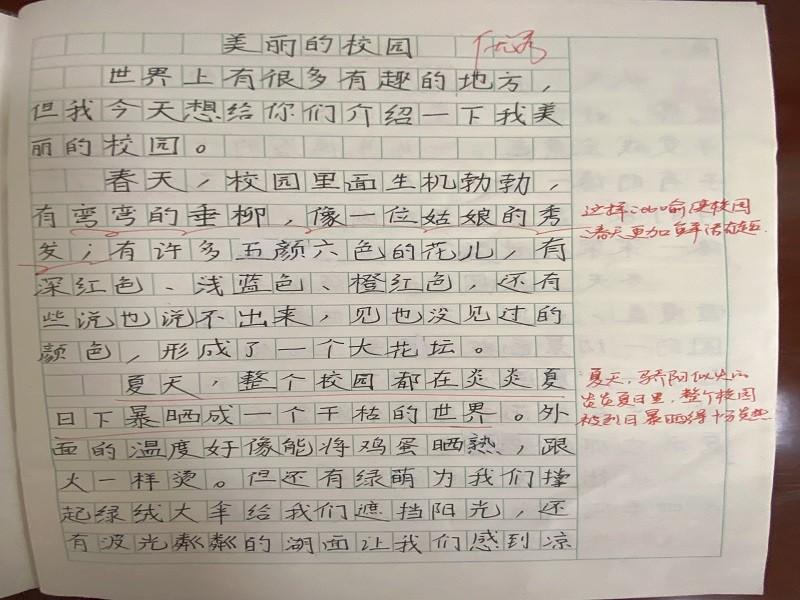 美丽的校园
优秀
世界上有很多有趣的地方，
但我今天想给你们介绍一下我美
丽的校园。
春天，校园里面生机勃勃，
有弯弯的垂柳，像一位姑娘的秀
发；有许多五颜六色的花儿，有
深红色、浅蓝色、橙红色，还有
些说也说不出来，见也没见过的
颜色，形成了一个大花坛。
夏天，整个校园都在炎炎夏
日下暴晒成一个干枯的世界。外
面的温度好像能将鸡蛋晒熟，跟
火一样烫。但还有绿萌为我们撑
起绿绒大伞给我们遮挡阳光，还
有波光粼粼的湖面让我们感到凉
这样的比喻使校园
春天更加鲜活有趣
夏天，骄阳似火的
炎炎夏日里，整个校园
被烈日暴晒得十分